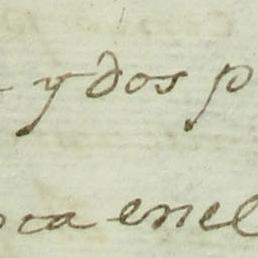 y dos p
ca enel